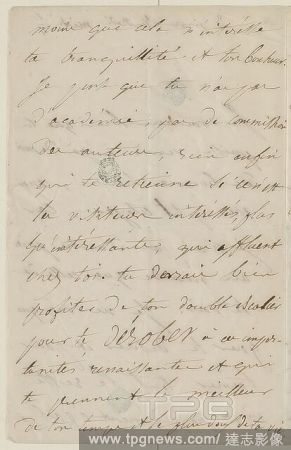 moins que cela n'intéresse
ta tranquillité et ton bonheur.
Je
que tu n'as pas
d'académie, pas de commission
des auteurs, rien enfin
qui te retienne si ce n'est
tes visiteurs intéressés plus
qu'intéressants, qui affluent
chez toi. tu devrais bien
profiter de ton double escalier
pour te dérober à ces impor-
tunités renaissantes et qui
te prennent le meilleur
de ton temps et
TPG
www.tpgnews.com / 達志影像